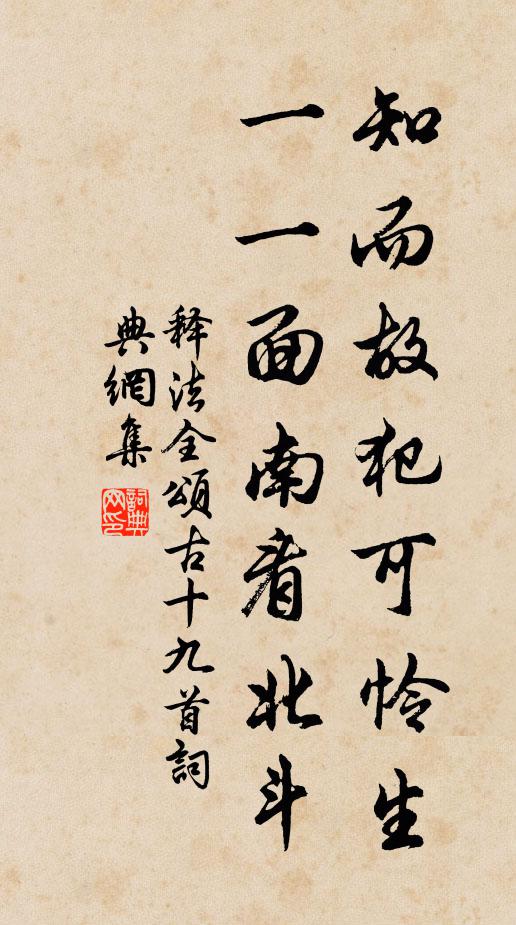 知而故犯可怜生
一一面南看北斗
释法全頌古十九首詞
典網集
詞典網印